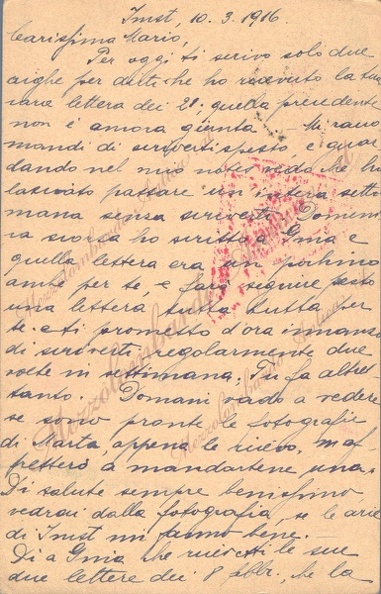 Imst, 10. 3. 1916.
Carissima Mario,
Per oggi ti scrivo solo due
righe per dirti che ho ricevuto la tua
cara lettera dei 21. quella precedente
non è ancora giunta Mi racco
mandi di scriverti spesso e guar
dando nel mio notes vedo che ho
lasciato passare un intera setti
mana senza scriverti. Domeni
ca scorsa ho scritto a Gina e
quella lettera era un pochino
anche per te, e farò seguire presto
una lettera tutta tutta per
te e ti promet&to d'ora innanzi
di scriverti regolarmente due
volte in settimana; Tu fa altret
tanto. Domani vado a vedere
se sono pronte le fotografie
di Marta, appena le ricevo, m'af
fretterò a mandartene una.
Di salute sempre benissimo
vedrai dalla fotografia, se le arie
di Imst mi fanno bene.
Di a Gina che ricevetti le sue
due lettere dei 8 febbr., che la
Mezzolombardo